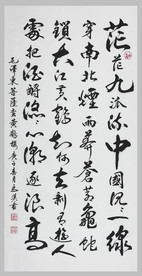 茫茫九派流中國沉沉一線
穿南北煙雨莽蒼蒼龜蛇
鎖大江黃鶴知何去剩有遊人
處把酒酹滔滔心潮逐浪高
毛澤東菩薩蠻黃鶴樓